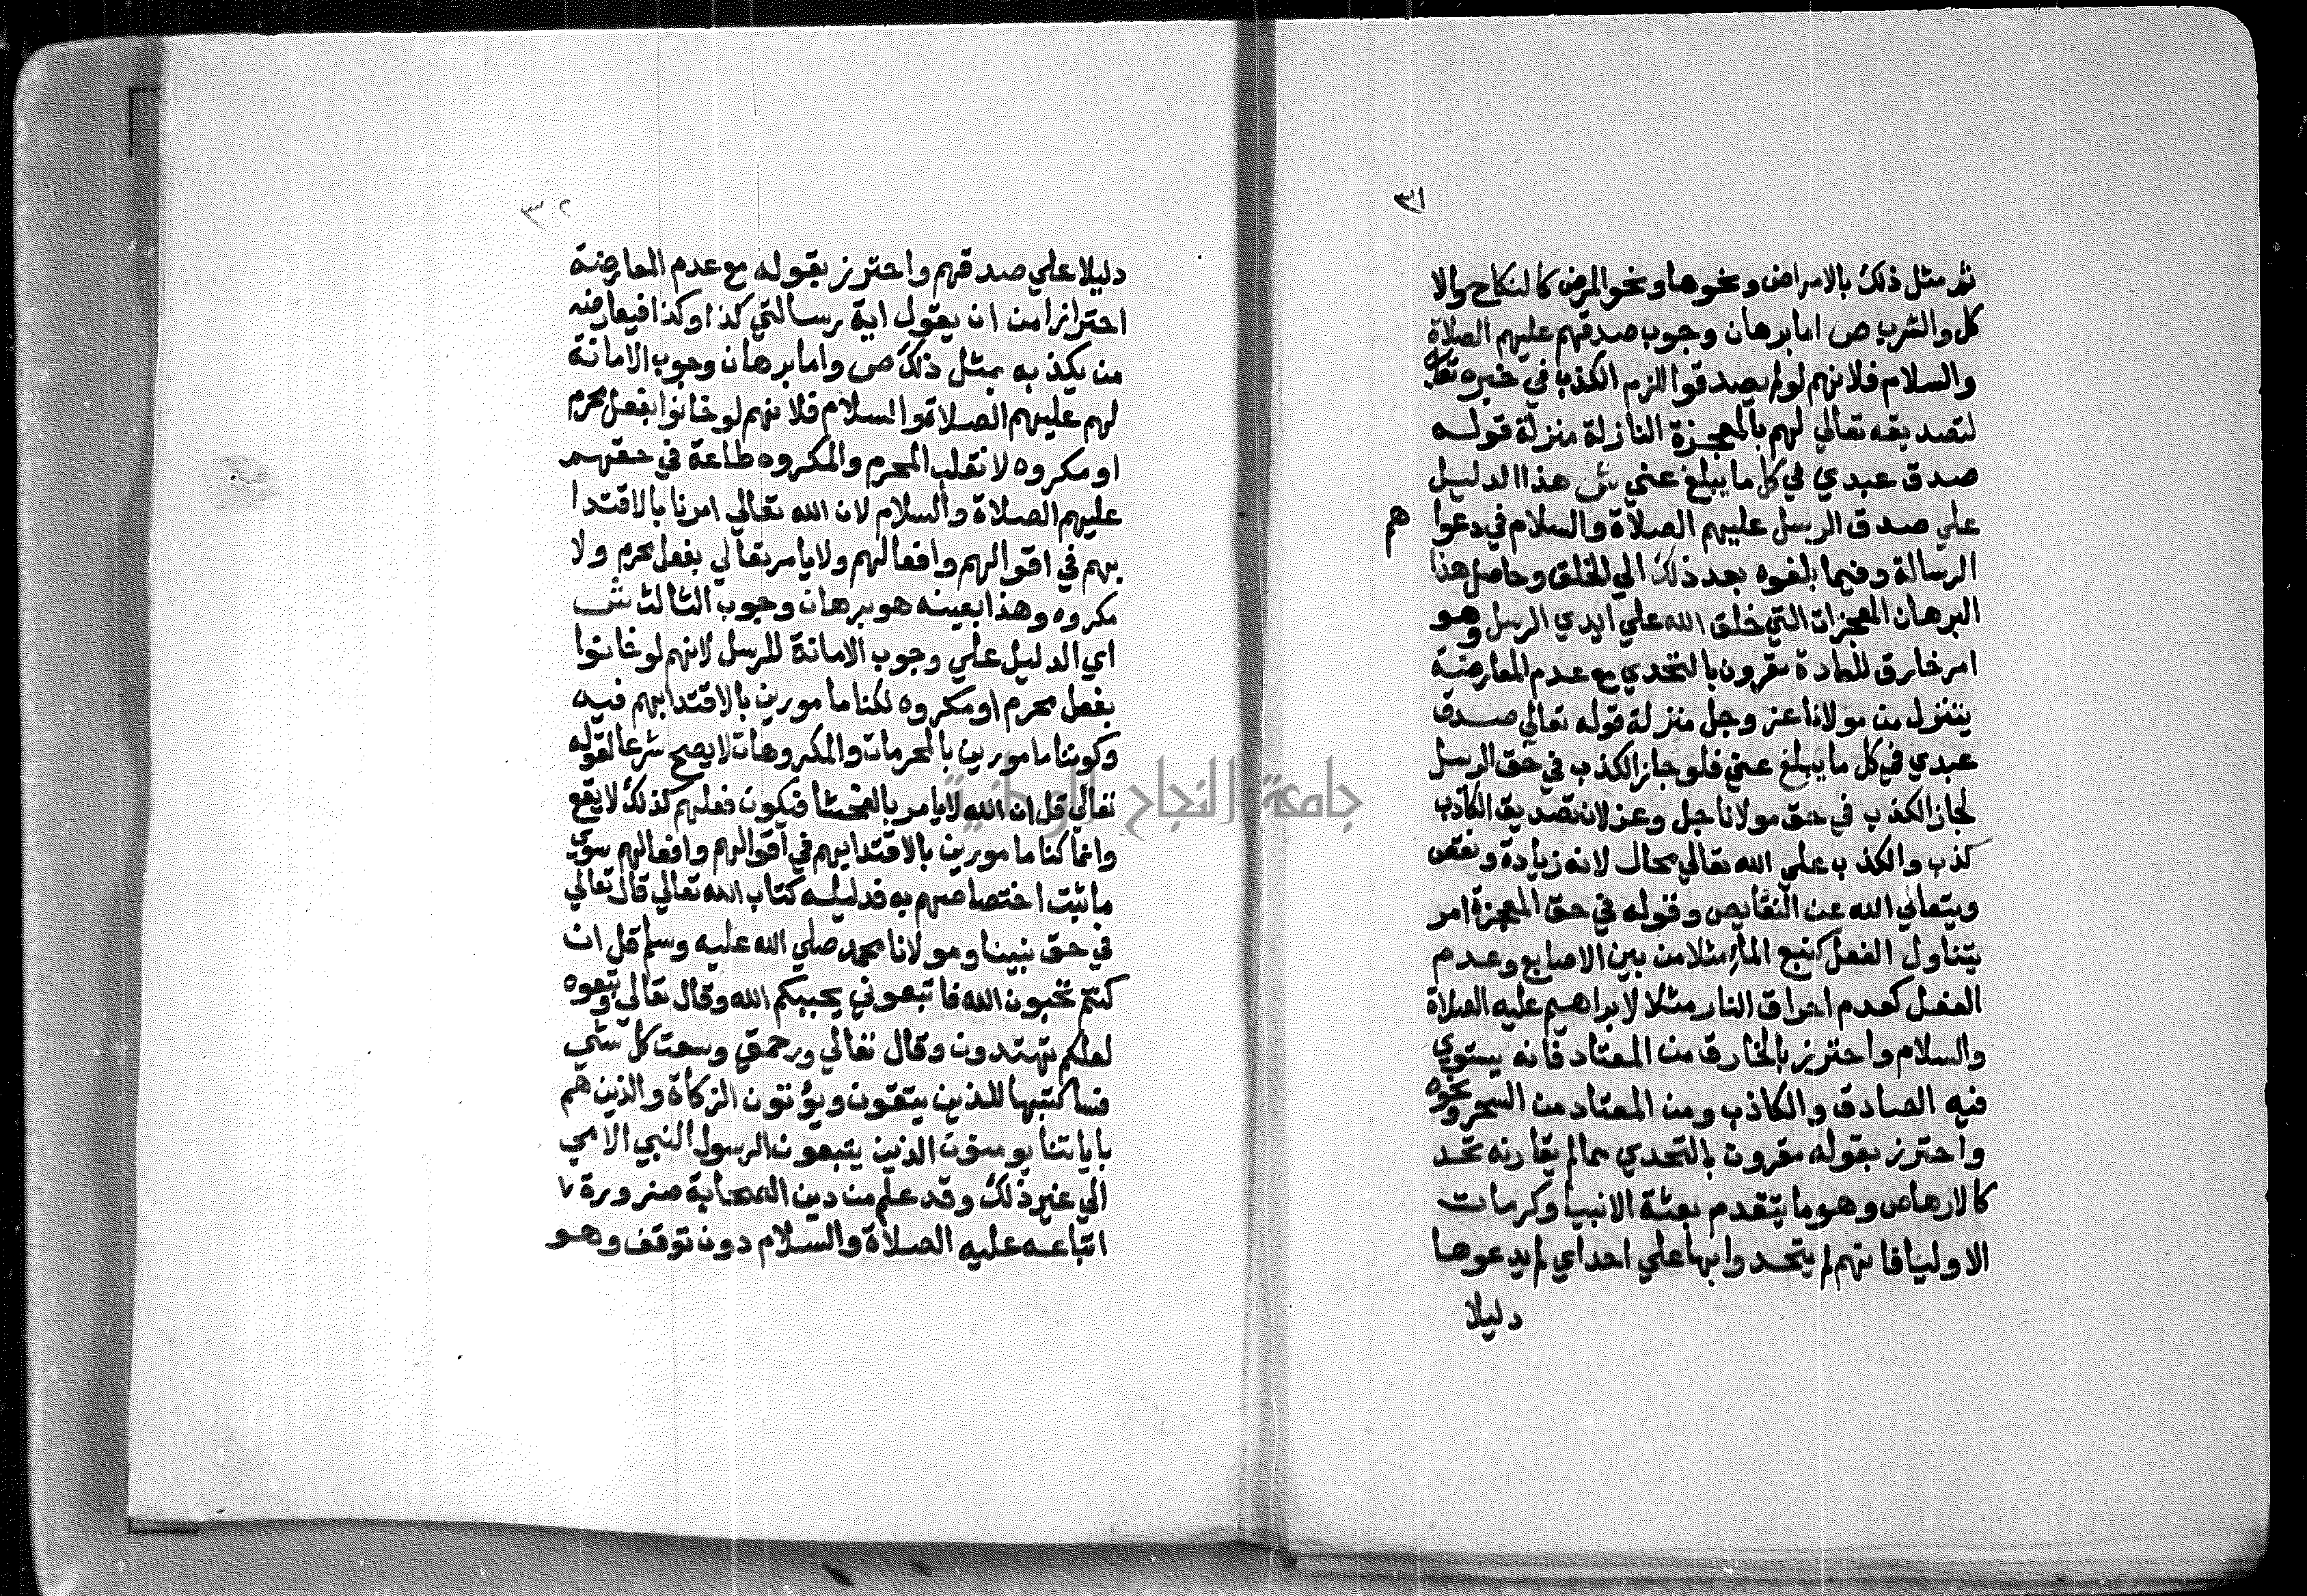 ٣١
مثل ذلك بالامراض ونحوها ونحو المرض كالنكاح والا
كل والشرب ص اما برهان وجوب صدقهم عليهم الصلاة
والسلام فلانهم لو لم يصدقوا للزم الكذب في خبره تعالي
لتصديقه تعالي لهم بالمعجزة النازلة منزلة قوله
صدق عبدي في كل ما يبلغ عني ش هذا الدليل
علي صدق الرسل عليهم الصلاة والسلام في دعواهم
الرسالة وفيما بلغوه بعد ذلك الي الخلق وحاصل هذا
البرهان المعجزات التي خلق الله علي ايدي الرسل وهو
امر خارق للعادة مقرون بالتحدي مع عدم المعارضة
يتنزل من مولانا عز وجل منزلة قوله تعالي صدق
عبدي في كل ما يبلغ عني فلو جاز الكذب في حق الرسل
لجاز الكذب في حق مولانا جل وعز لان تصديق الكاذب
كذب والكذب علي الله تعالي محال لانه زيادة ونقص
ويتعالي الله عن النقايص وقوله في حق المعجزة امر
يتناول الفعل كنبع الماء مثلا من بين الاصابع وعدم
الفعل كعدم احراق النار مثلا لابراهيم عليه الصلاة
والسلام واحترز بالخارق من المعتاد فانه يستوي
فيه الصادق والكاذب ومن المعتاد من السحر ونحوه
واحترز بقوله مقرون بالتحدي مما لم يقارنه تحد
كالارهاص وهو ما يتقدم بعثة الانبيا وكرمات
الاوليا فانهم لم يتحدوا بها علي احد اي لم يدعوها
دليلا
٣٢
دليلا علي صدقهم واحترز بقوله مع عدم المعارضة
احترازا من ان يقول اية رسالتي كذا وكذا فيعارضه
من يكذبه بمثل ذلك ص واما برهان وجوب الامانة
لهم عليهم الصلاة والسلام فلانهم لو خانوا بفعل محرم
او مكروه لانقلب المحرم والمكروه طاعة في حقهم
عليهم الصلاة والسلام لان الله تعالي امرنا بالاقتدا
بهم في اقوالهم وافعالهم ولا يامر تعالي بفعل محرم ولا
مكروه وهذا بعينه هو برهان وجوب الثالث ش
اي الدليل علي وجوب الامانة للرسل لانهم لو خانوا
بفعل محرم او مكروه لكنا مامورين بالاقتدا بهم فيه
وكوننا مامورين بالمحرمات والمكروهات لا يصح شرعا لقوله
تعالي قل ان الله لا يامر بالفحشا فيكون فعلهم كذلك لا يقع
وانما كنا مامورين بالاقتدا بهم في اقوالهم وافعالهم سوي
ما ثبت اختصاصهم به فدليله كتاب الله تعالي قال تعالي
في حق نبينا ومولانا محمد صلي الله عليه وسلم قل ان
كنتم تحبون الله فاتبعوني يحببكم الله وقال تعالي واتبعوه
لعلكم تهتدون وقال تعالي ورحمتي وسعت كل شي
فساكتبها للذين يتقون ويؤتون الزكاة والذين هم
باياتنا يومنون الذين يتبعون الرسول النبي الامي
الي غير ذلك وقد علم من دين الصحابة ضرورة
اتباعه عليه الصلاة والسلام دون توقف وهو
جامعة النجاح الوطنية